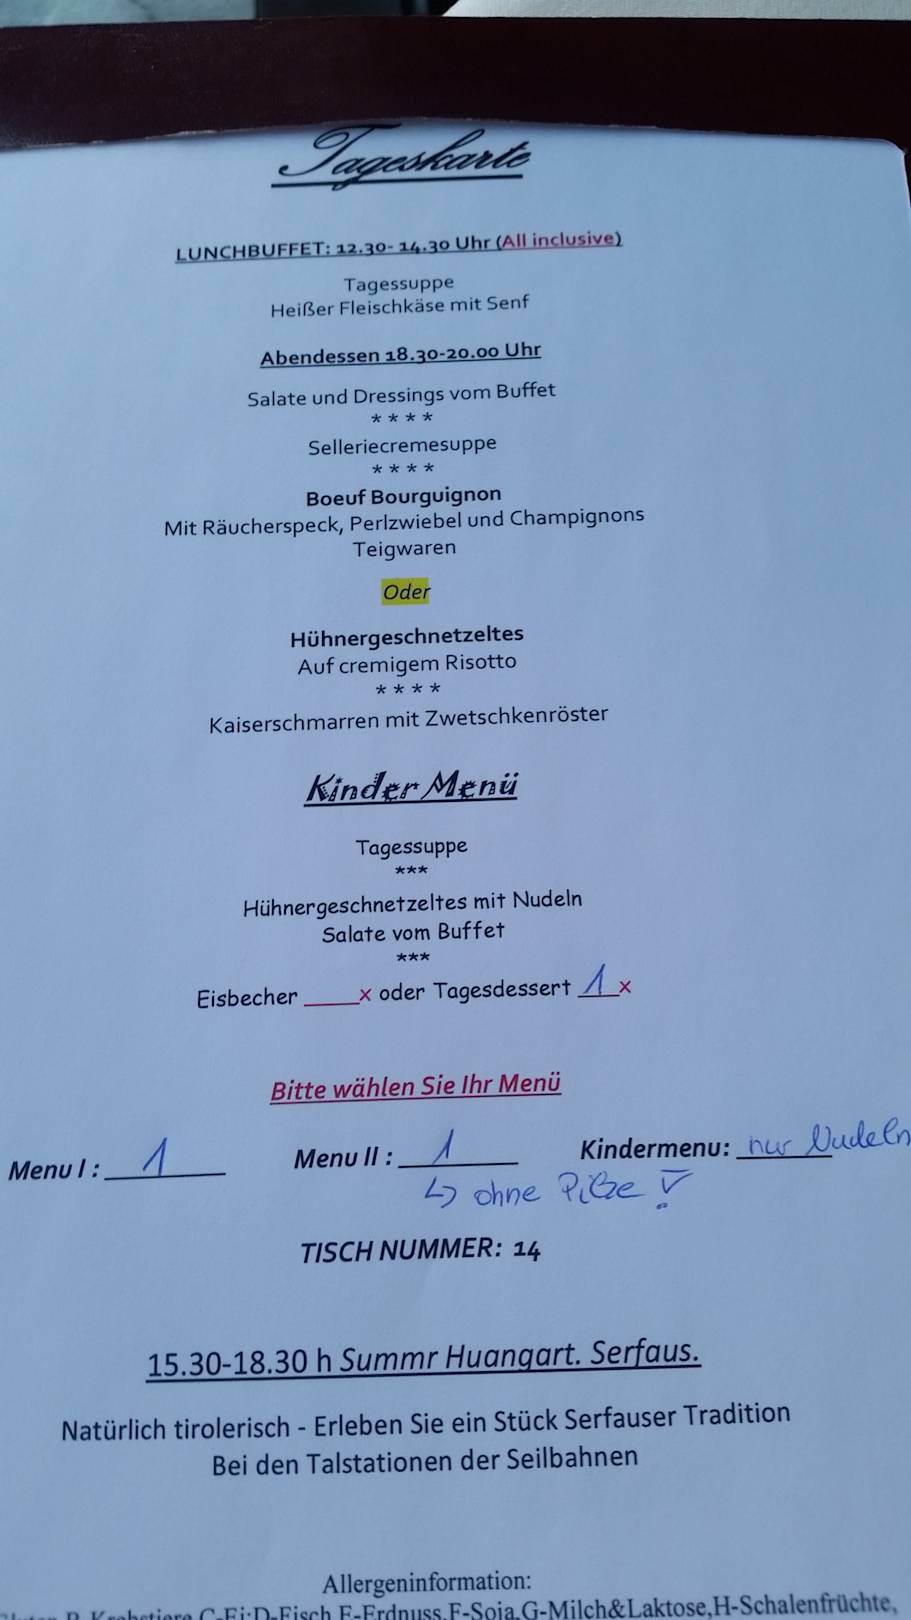 Tageskarte
LUNCHBUFFET: 12.30- 14.30 Uhr (All inclusive)
Tagessuppe
Heißer Fleischkäse mit Senf
Abendessen 18.30-20.00 Uhr
Salate und Dressings vom Buffet
* * * *
Selleriecremesuppe
* * * *
Boeuf Bourguignon
Mit Räucherspeck, Perlzwiebel und Champignons
Teigwaren
Oder
Hühnergeschnetzeltes
Auf cremigem Risotto
* * * *
Kaiserschmarren mit Zwetschkenröster
Kinder Menü
Tagessuppe
***
Hühnergeschnetzeltes mit Nudeln
Salate vom Buffet
***
Eisbecher _____x oder Tagesdessert 1 x
Bitte wählen Sie Ihr Menü
Menu I : 1 Menu II : 1 Kindermenu: nur Nudeln
↳ ohne Pilze !
TISCH NUMMER: 14
15.30-18.30 h Summr Huangart. Serfaus.
Natürlich tirolerisch - Erleben Sie ein Stück Serfauser Tradition
Bei den Talstationen der Seilbahnen
Allergeninformation:
C-Ei;D-Fisch,E-Erdnuss,F-Soja,G-Milch&Laktose,H-Schalenfrüchte,